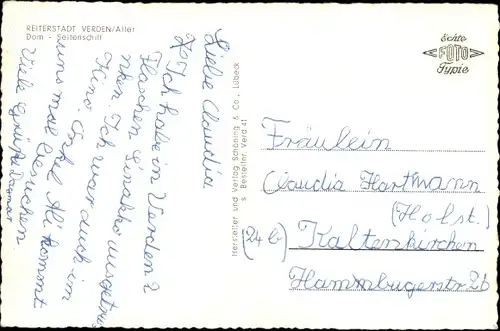 REITERSTADT VERDEN/Aller
Dom - Seitenschiff
Echte
FOTO
Typie
Liebe Claudia
Ich habe in Verden 2
Flaschen Sinalko ausgetrun
nken. Ich war auch im
Kino. Onkel Ali kommt
uns mal besuchen
Viele Grüße Dagmar.
Hersteller und Verlag Schöning & Co., Lübeck
s Besteller. Verd 41
Fräulein
Claudia Hartmann
(Holst.)
(24b) Kaltenkirchen
Hammbugerstr 2b